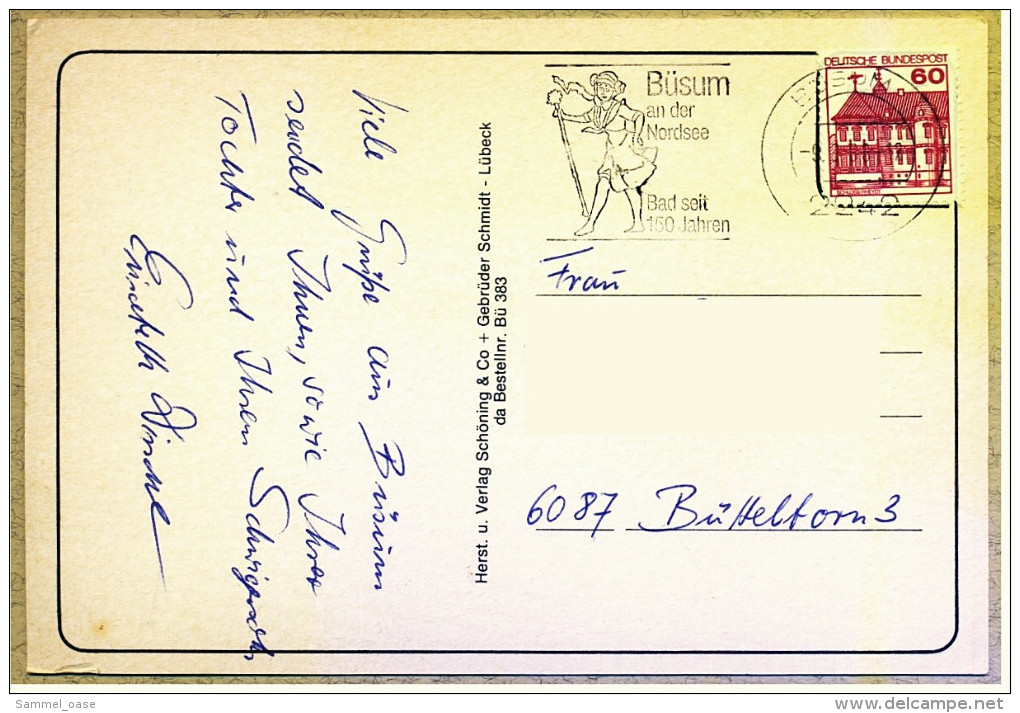 Viele Grüße aus Büsum
sendet Ihnen, sowie Ihrer
Tochter und Ihrem
Herst. u. Verlag Schöning & Co + Gebrüder Schmidt - Lübeck
da Bestellnr. Bü 383
Büsum
an der
Nordsee
Bad seit
150 Jahren
BÜSUM
2242
DEUTSCHE BUNDESPOST
60
Frau
6087 Büttelborn 3
Sammel_oase
www.delcampe.net